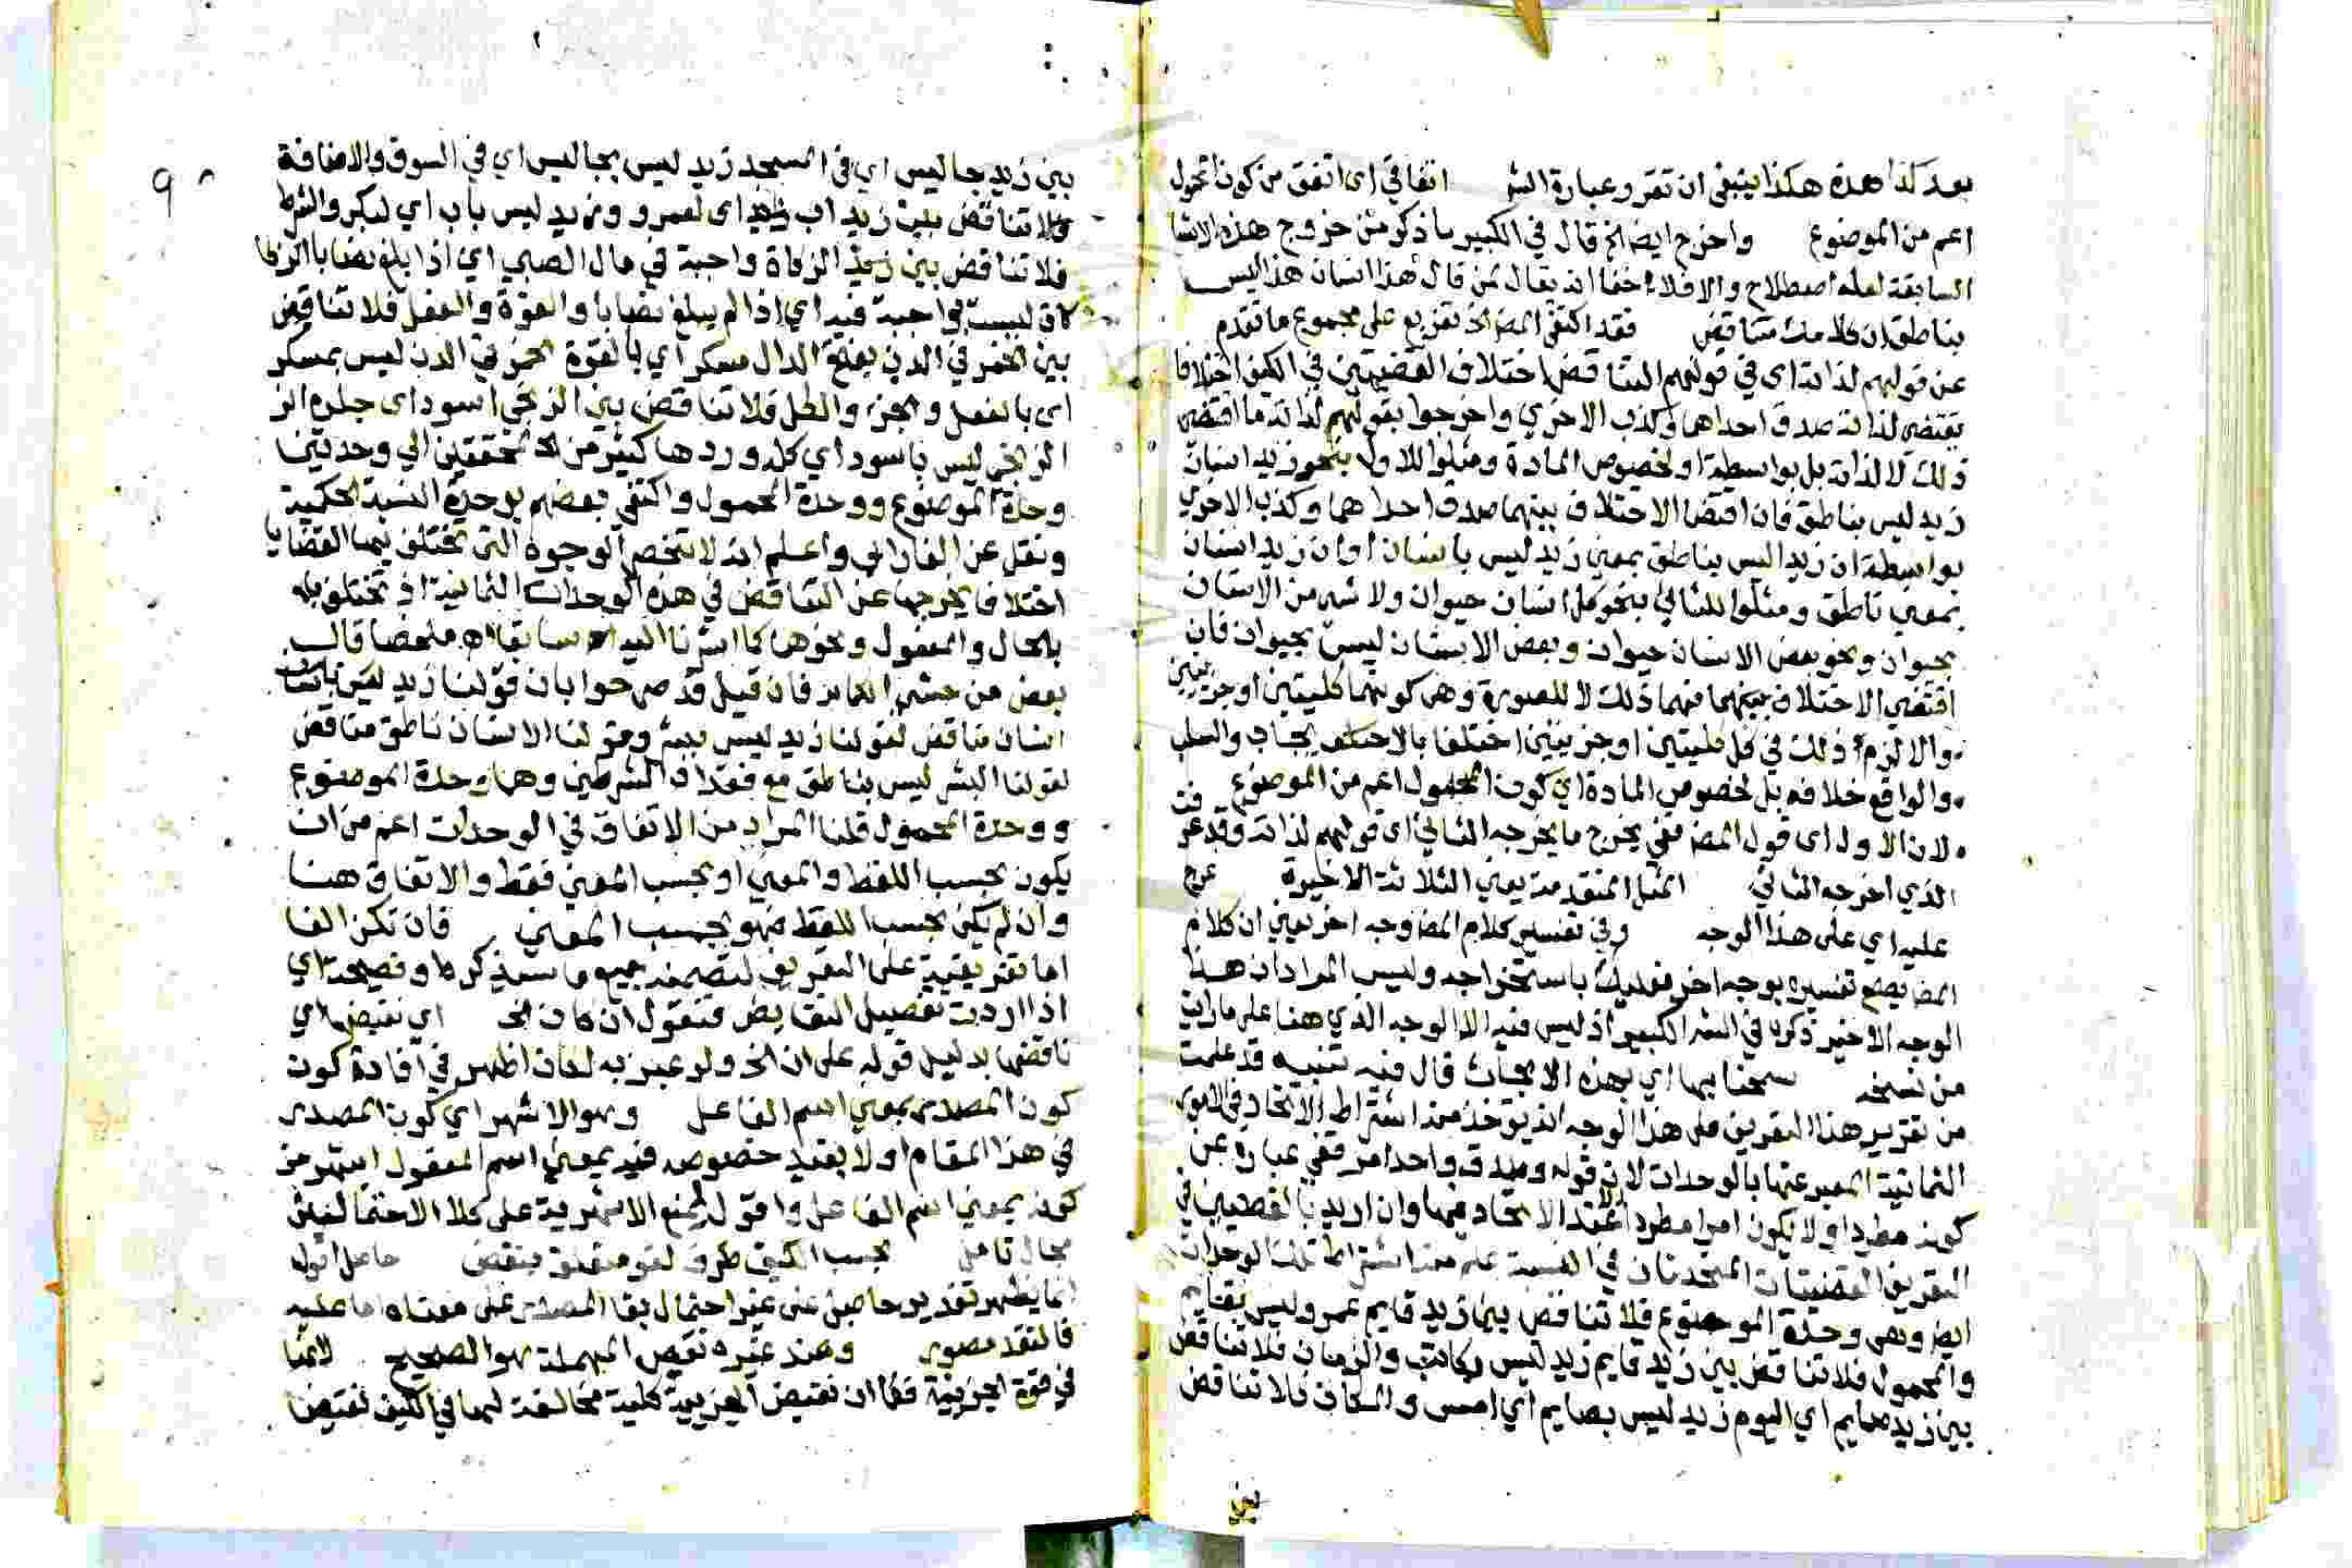 بعد كذا هذه هكذا ينبغي ان تقرر عبارة الشر اتفاقي اى اتفق من كون المحمول
اعم من الموضوع واخرج ايضا الخ قال في الكبير ما ذكر من خروج هذه الامثلة
السابقة لعله اصطلاح والا فلا خفا انه يقال لمن قال هذا انسان هذا ليس
بناطق ان كلامك متناقض فقد اكتفى المص الخ تفريع على مجموع ما تقدم
عن قولهم لذاته اى في قولهم التناقض اختلاف القضيتين في الكيف اختلافا
يقتضي لذاته صدق احداهما وكذب الاخرى واخرجوا بقولهم لذاته ما اقتضى
ذلك لا لذاته بل بواسطة او لخصوص المادة ومثلوا للاول بنحو زيد انسان
زيد ليس بناطق فان اقتضا الاختلاف بينهما صدق احداهما وكذب الاخرى
بواسطة ان زيد ليس بناطق بمعنى زيد ليس بانسان او ان زيد انسان
بمعنى ناطق ومثلوا للثاني بنحو كل انسان حيوان ولا شي من الانسان
بحيوان ونحو بعض الانسان حيوان وبعض الانسان ليس بحيوان فان
اقتضى الاختلاف بينهما فيهما ذلك لا للصورة وهي كونهما كليتين او جزئيتين
والا لزم ذلك في كل كليتين او جزئيتين اختلفا بالايجاب والسلب
والواقع خلافه بل لخصوص المادة اي كون المحمول اعم من الموضوع
لان الاول اى قول المص ففي يخرج ما يخرجه الثاني اى قولهم لذاته وقد عرفت
الذي اخرجه الثاني المثل المتقدمة يعني الثلاثة الاخيرة عرج
عليه اي على هذا الوجه وفي تفسير كلام المص وجه اخر يعني ان كلام
المص يصح تفسيره بوجه اخر فعليك باستخراجه وليس المراد ان هذا
الوجه الاخير ذكره في الشر الكبير اذ ليس فيه الا الوجه الذي هنا على ما رايت
من نسخه سمحنا بها اي بهذه الابحاث قال فيه تنبيه قد علمت
من تقرير هذا التعريف على هذا الوجه انه يوخذ منه اشتراط الاتحاد في الامور
الثمانية المعبر عنها بالوحدات لان قوله وصدق واحد امر قفي عبارة عن
كونه مطردا ولا يكون امرا مطردا الا عند الاتحاد فيها وان اريد بالقضيتين في
التعريف القضيتان المتحدتان في القسمة علم منه اشتراط تلك الوحدات
ايضا وهي وحدة الموضوع فلا تناقض بين زيد قايم عمرو ليس بقايم
والمحمول فلا تناقض بين زيد قايم زيد ليس بكاتب والزمان فلا تناقض
بين زيد صايم اي اليوم زيد ليس بصايم اي امس والمكان فلا تناقض
بين
٩٨
بين زيد جالس اي في المسجد زيد ليس بجالس اي في السوق والاضافة
فلا تناقض بين زيد اب اى لعمرو وزيد ليس باب اي لبكر والشرط
فلا تناقض بين الزكاة واجبة في مال الصبي اي اذا بلغ نصابا الزكا
كاة ليست بواجبة فيه اي اذا لم يبلغ نصابا والقوة والفعل فلا تناقض
بين الخمر في الدن بفتح الدال مسكر اي بالقوة الخمر في الدن ليس بمسكر
اى بالفعل والجزء والكل فلا تناقض بين الزنجي اسود اى جلده الز
الزنجي ليس باسود اي كله وردها كثير من المحققين الي وحدتين
وحدة الموضوع ووحدة المحمول واكتفى بعضهم بوحدة النسبة الحكمية
ونقل عن الفارابي واعلم انه لا تنحصر الوجوه التى تختلف بها القضايا
اختلافا يخرجها عن التناقض في هذه الوحدات الثمانية اذ تختلف به
بالحال والمفعول ونحوها كما اشرنا اليه سابقا اه ملخصا قال
بعض من حشى المكان فان قيل قد صرحوا بان قولنا زيد ليس بانسان
انسان مناقض لقولنا زيد ليس ببشر وقولنا الانسان ناطق مناقض
لقولنا البشر ليس بناطق مع فقدان الشرطين وهما وحدة الموضوع
ووحدة المحمول قلنا المراد من الاتفاق في الوحدات اعم من ان
يكون بحسب اللفظ والمعني او بحسب المعني فقط والاتفاق هنا
وان لم يكن بحسب اللفظ فهو بحسب المعني فان تكن الفا
اما تفريعية على التعريف لتضمنه جميع ما سيذكره او فصيحة اي
اذا اردت تفصيل النقايض فنقول ان كان الخ اي نقيض اي
ناقضها بدليل قوله على ان الخ ولو عبر به لكان اظهر في افادة كون
كون المصدر بمعني اسم الفاعل وهو الاشهر اي كون المصدر
في هذا المقام اولا بقيد خصوصه فيه بمعني اسم المفعول اشهر من
كونه بمعني اسم الفاعل واقول لمنع الاشهرية على كلا الاحتمالين
مجال تامل بحسب الكيف ظرف لغو متعلق بنقض حاصل اقوله
انما يظهر تقدير حاصل على غير احتمال بقا المصدر على معناه اما عليه
فالنقد مصور وعند غيره نقيض المهملة هو الصحيح لانها
في قوة الجزئية فكما ان نقيض الجزئية كلية مخالفة لها في الكيف نقيض